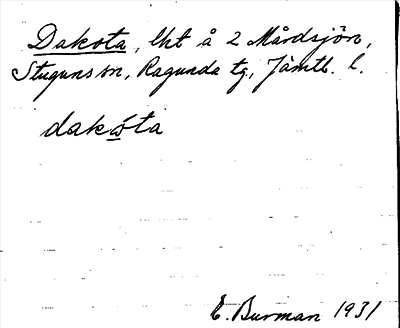 Dakota, lht å 2 Mårdsjön,
Stuguns sn, Ragunda tg, Jämtl. l.
dakó̲ta
E. Burman 1931